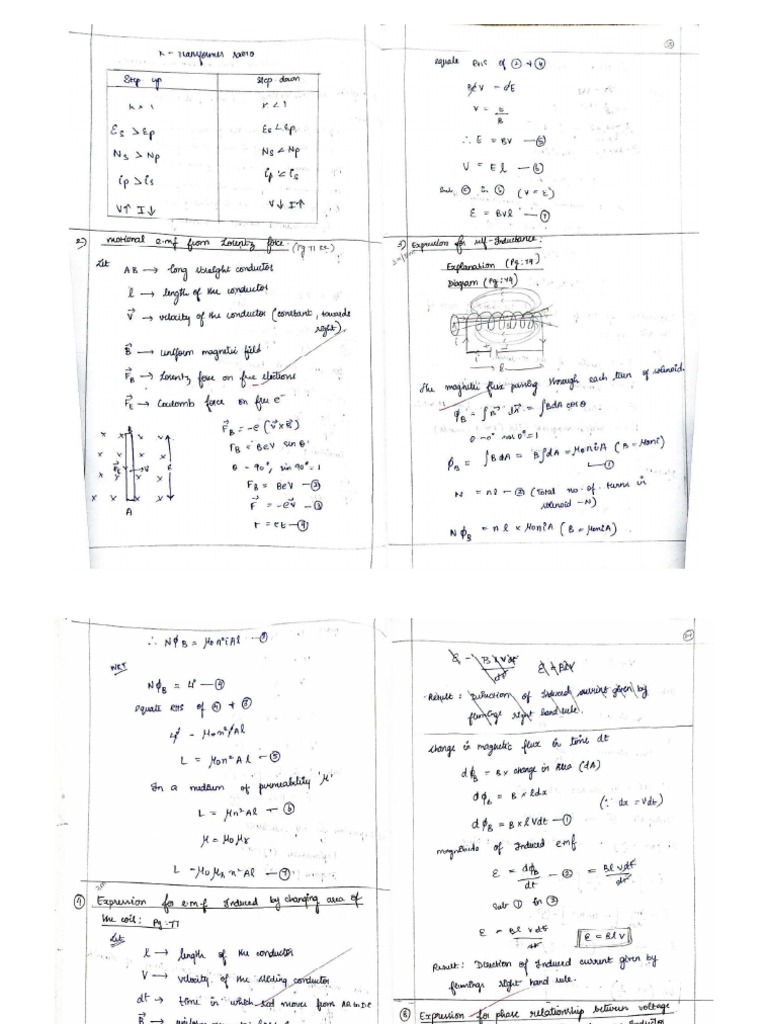 K - Transformer ratio
Step up Step down
K > 1 K < 1
Es > Ep Es < Ep
Ns > Np Ns < Np
ip > is ip < is
V↑ I↓ V↓ I↑
2) Motional e.m.f from Lorentz force. (Pg 71
Let
AB → long straight conductor
l → length of the conductor
V → velocity of the conductor (constant, towards
right)
B → uniform magnetic field
F_B → Lorentz force on free electrons
F_E → Coulomb force on free e⁻
F_B = -e (v×B)
F_B = BeV sin θ
θ = 90°, sin 90° = 1
F_B = BeV —②
F = -eV —③
F = eE —④
A
equate RHS of ② & ④
BeV = eE
V = E/B
∴ E = BV —⑤
V = El —⑥
Sub ⑤ in ⑥ (V = E)
E = BVl —⑦
3) Expression for self-Inductance:
Explanation (Pg:79)
Diagram (Pg:79)
The magnetic flux passing through each turn of solenoid.
ϕ_B = ∫B dA = ∫BdA cos θ
θ = 0° cos 0° = 1
ϕ_B = ∫BdA = B∫dA = μ₀niA (B = μ₀ni)
—①
N = nl —② (Total no. of turns in
solenoid -N)
Nϕ_B = nl × μ₀niA (B = μ₀niA)
∴ Nϕ_B = μ₀n²iAl —③
WKT
Nϕ_B = Li —④
equate RHS of ④ & ③
Li = μ₀n²iAl
L = μ₀n²Al —⑤
In a medium of permeability 'μ'
L = μn²Al —⑥
μ = μ₀μr
L = μ₀μr n²Al —⑦
④ Expression for e.m.f Induced by changing area of
the coil: Pg-77
Let
l → length of the conductor
V → velocity of the sliding conductor
dt → time in which rod moves from AB to DC
ε = Blvdt/dt ε = Blv
Result: Direction of Induced current given by
flemings right hand rule.
change in magnetic flux in time dt
dϕ_B = B × change in area (dA)
dϕ_B = B × ldx
(∵ dx = Vdt)
dϕ_B = B × lVdt —①
magnitude of Induced e.m.f
ε = dϕB/dt —② = Blvdt/dt
Sub ① in ②
ε = Blvdt/dt ε = Blv
Result: Direction of Induced current given by
flemings right hand rule.
Expression for phase relationship between voltage